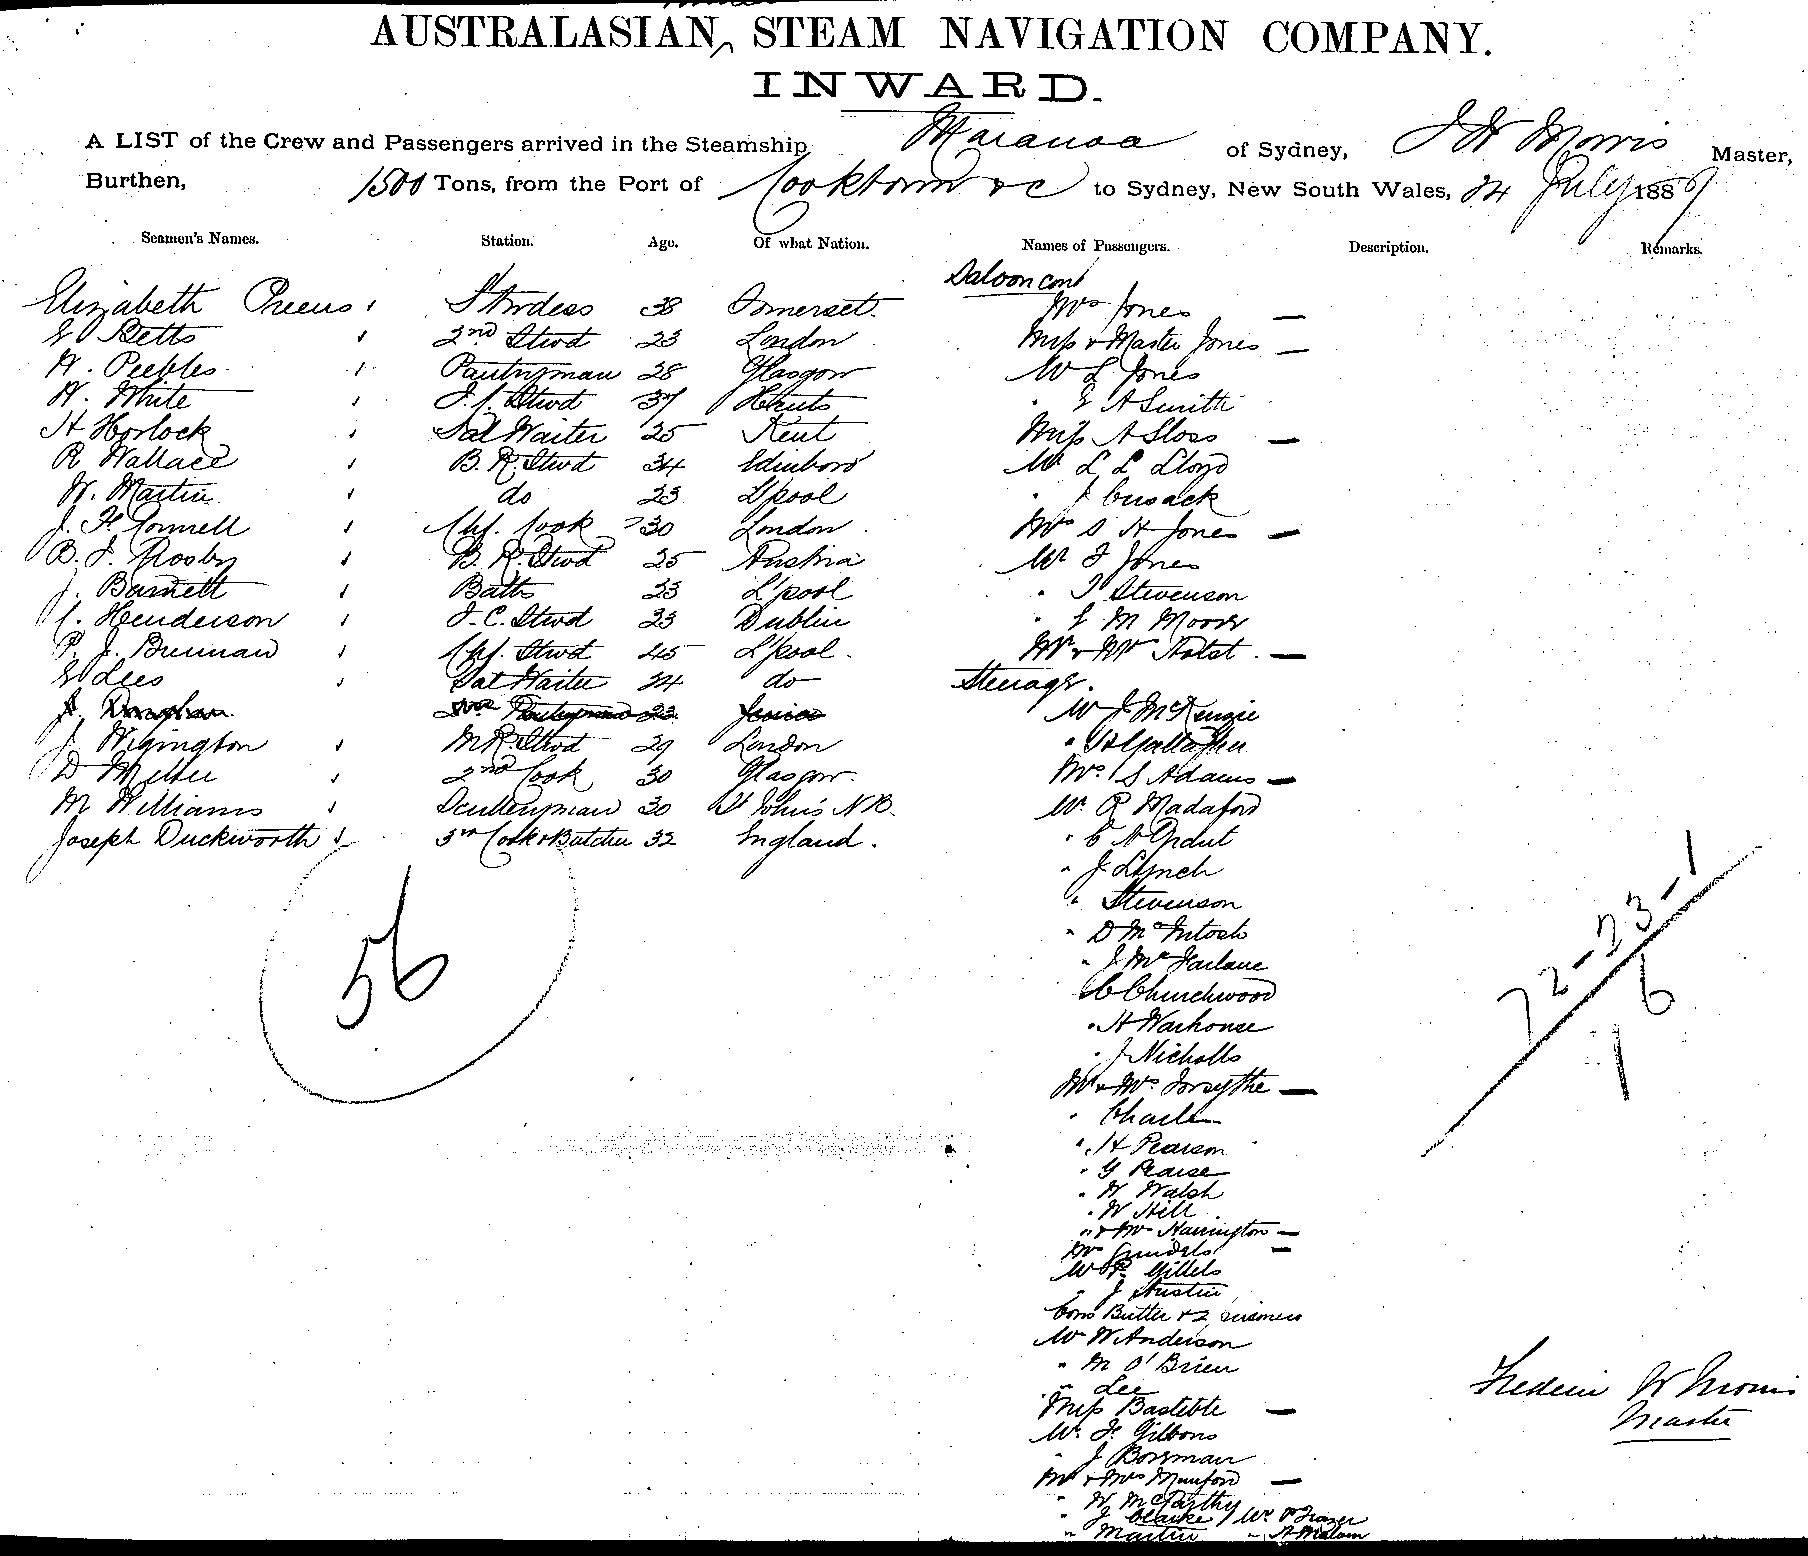 AUSTRALASIAN STEAM NAVIGATION COMPANY.
INWARD.
A LIST of the Crew and Passengers arrived in the Steamship Maranoa of Sydney, F W Morris Master,
Burthen, 1500 Tons, from the Port of Cooktown &c to Sydney, New South Wales, 24 July 1887
Seamen's Names. Station. Age. Of what Nation. Names of Passengers. Description. Remarks.
Saloon cont
Elizabeth Stwdess 38 Somerset. Mrs Jones —
E Betts 2nd Stwd 23 London Miss & Master Jones —
W. Peebles Pantryman 28 Glasgow Mr L Jones
W. White F.C. Stwd 37 Hants " E A Smith
H Horlock Sal Waiter 25 Kent Miss A Sloss —
R Wallace B. R. Stwd 34 Edinboro Mr L L Lloyd
W. Martin do 23 L'pool " J Cusack
J. F. Connell Chf. Cook 30 London Mrs S H Jones —
B. J. Mosby B. R. Stwd 25 Austria Mr F Jones
J. Barnett Baths 23 L'pool " T Stevenson
C. Henderson F.C. Stwd 23 Dublin " E M Moors
P. J. Brennan Chf. Stwd 45 L'pool. Mr & Mrs —
E Lees Sal Waiter 24 do Steerage.
23 Mr J McKenzie
J. Wigington M R. Stwd 29 London " H Gallagher
D Miller 2nd Cook 30 Glasgow. Mrs S Adams —
M Williams Sculleryman 30 St John's N.B. Mr. R Madaford
Joseph Duckworth 3rd Cook & Butcher 32 England. " C A
" J Lynch
" Stevenson
56 " D McIntosh
72-23-1
" J McFarlane
6
C Churchwood
" H Warhouse
1
" J Nicholls
Mr & Mrs Forsythe —
" Charles
" H Pearson
" G Pearse
" W Walsh
" W Hill
" & Mrs Harrington —
Mr P. Gillels
" J Austin
Cons Butler & 2 prisoners
Mr W Anderson
" M O'Brien
" Lee
Frederic W Morris
Miss Bastible —
Master
Mr. F. Gibbons
" J Bowman
Mr & Mrs Munford —
" W McCarthy
" J Clarke / Mr P Frazer
" Martin " A